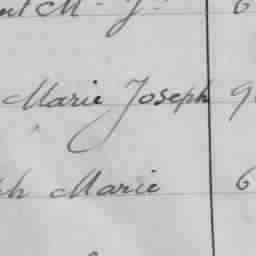 M - J - 6
Marie Joseph 9
h Marie 6